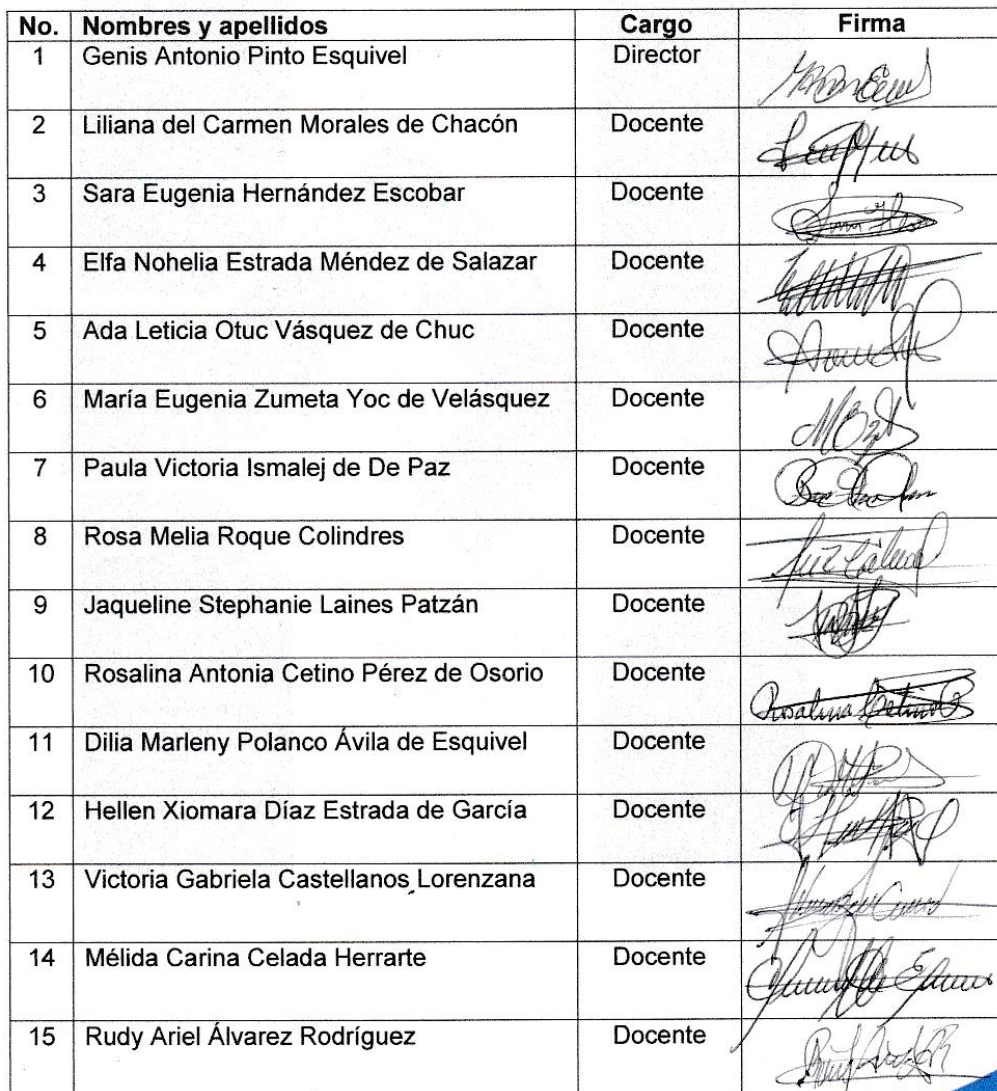 No. Nombres y apellidos Cargo Firma
1 Genis Antonio Pinto Esquivel Director
2 Liliana del Carmen Morales de Chacón Docente
3 Sara Eugenia Hernández Escobar Docente
4 Elfa Nohelia Estrada Méndez de Salazar Docente
5 Ada Leticia Otuc Vásquez de Chuc Docente
6 María Eugenia Zumeta Yoc de Velásquez Docente
7 Paula Victoria Ismalej de De Paz Docente
8 Rosa Melia Roque Colindres Docente
9 Jaqueline Stephanie Laines Patzán Docente
10 Rosalina Antonia Cetino Pérez de Osorio Docente Rosalina Cetino
11 Dilia Marleny Polanco Ávila de Esquivel Docente
12 Hellen Xiomara Díaz Estrada de García Docente
13 Victoria Gabriela Castellanos Lorenzana Docente
14 Mélida Carina Celada Herrarte Docente
15 Rudy Ariel Álvarez Rodríguez Docente